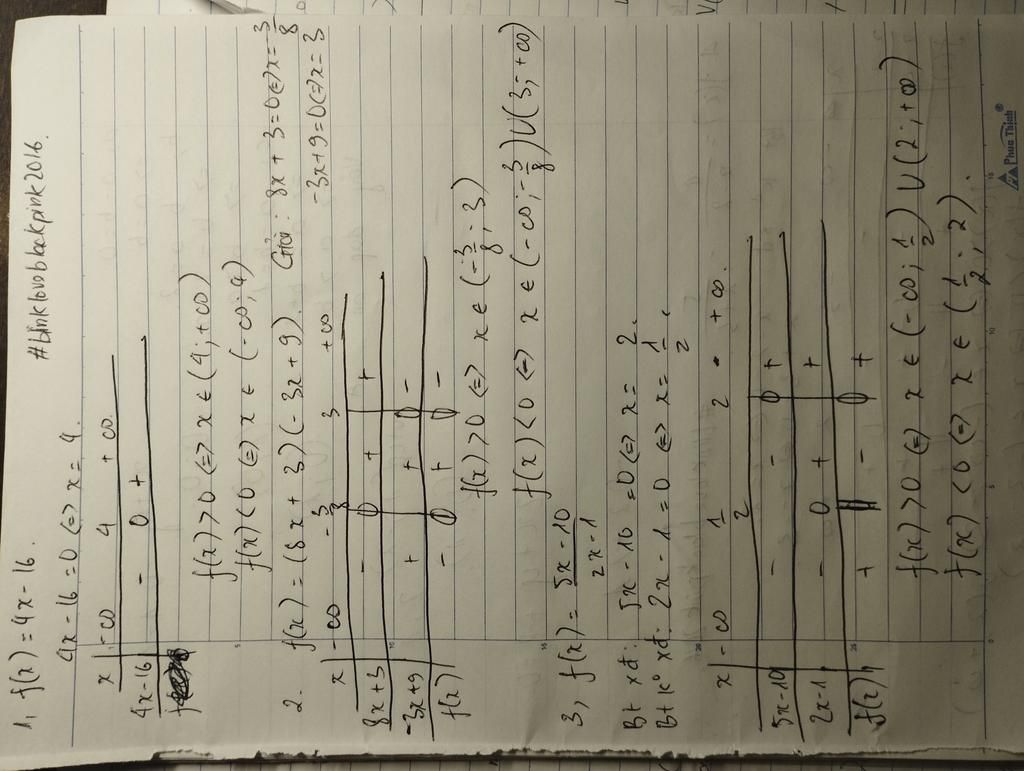 #blinklovoblackpink2016.
1, f(x) = 4x - 16.
4x - 16 = 0 (=) x = 4.
x -∞ 4 +∞
4x-16 - 0 +
f(x) > 0 (=) x ∈ (4; +∞)
f(x) < 0 (=) x ∈ (-∞; 4)
2. f(x) = (8x + 3)(-3x + 9). Giải: 8x + 3 = 0 (=) x = -3/8
-3x + 9 = 0 (=) x = 3
x -∞ -3/8 3 +∞
8x+3 - 0 + +
-3x+9 + + 0 -
f(x) - 0 + 0 -
f(x) > 0 (=) x ∈ (-3/8; 3)
f(x) < 0 (=) x ∈ (-∞; -3/8) U (3; +∞)
3, f(x) = 5x-10/2x-1
Bt xđ: 5x - 10 = 0 (=) x = 2.
Bt k° xđ: 2x - 1 = 0 (=) x = 1/2.
x -∞ 1/2 2 +∞
5x-10 - - 0 +
2x-1 - 0 + +
f(x) + || - 0 +
f(x) > 0 (=) x ∈ (-∞; 1/2) U (2; +∞)
f(x) < 0 (=) x ∈ (1/2; 2).
Phúc Thịnh®